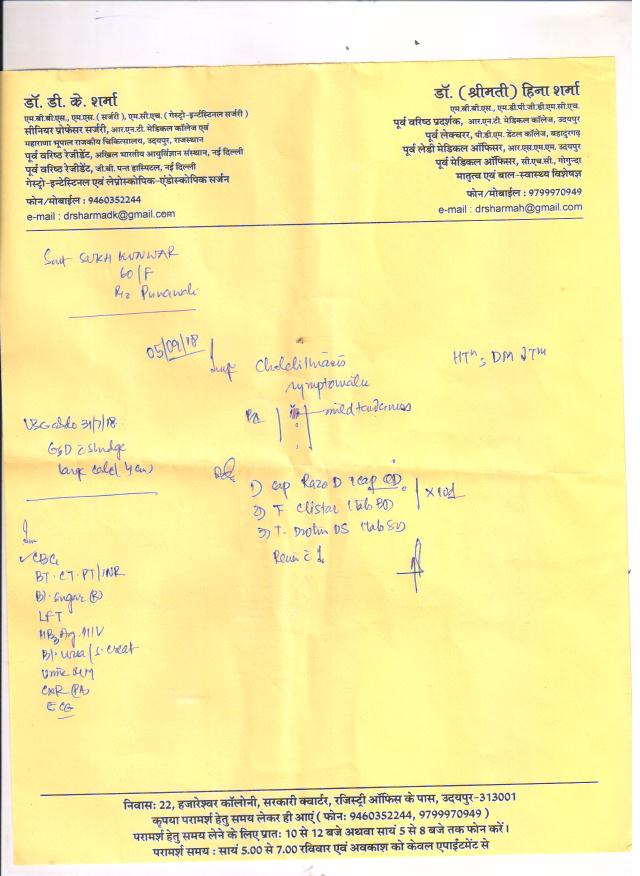 डॉ. डी. के. शर्मा
एम.बी.बी.एस., एम.एस. ( सर्जरी ), एम.सी.एच. ( गेस्ट्रो-इन्टेस्टिनल सर्जरी )
सीनियर प्रोफेसर सर्जरी, आर.एन.टी. मेडिकल कॉलेज एवं
महाराणा भूपाल राजकीय चिकित्सालय, उदयपुर, राजस्थान
पूर्व वरिष्ठ रेजीडेंट, अखिल भारतीय आयुर्विज्ञान संस्थान, नई दिल्ली
पूर्व वरिष्ठ रेजीडेंट, जी.बी. पन्त हास्पिटल, नई दिल्ली
गेस्ट्रो-इन्टेस्टिनल एवं लेप्रोस्कोपिक-एंडोस्कोपिक सर्जन
फोन/मोबाईल : 9460352244
e-mail : drsharmadk@gmail.com
डॉ. (श्रीमती) हिना शर्मा
एम.बी.बी.एस., एम.डी.पी.जी.डी.एम.सी.एच.
पूर्व वरिष्ठ प्रदर्शक, आर.एन.टी. मेडिकल कॉलेज, उदयपुर
पूर्व लेक्चरर, पी.डी.एम. डेंटल कॉलेज, बहादुरगढ़
पूर्व लेडी मेडिकल ऑफिसर, आर.एस.एम.एम. उदयपुर
पूर्व मेडिकल ऑफिसर, सी.एच.सी., गोगुन्दा
मातृत्व एवं बाल-स्वास्थ्य विशेषज्ञ
फोन/मोबाईल : 9799970949
e-mail : drsharmah@gmail.com
Smt SUKH KUNWAR
60/F
R/o Punawali
05/09/18
HTn, DM
mild tenderness
31/7/18
1) Cap Razo D 1 cap OD
2) T
3) T.
CBC
BT. CT. PT/INR
Bl. Sugar (R)
LFT
HIV
Bl. Urea / S. creat
CXR (PA)
ECG
निवासः 22, हजारेश्वर कॉलोनी, सरकारी क्वार्टर, रजिस्ट्री ऑफिस के पास, उदयपुर-313001
कृपया परामर्श हेतु समय लेकर ही आएं ( फोन: 9460352244, 9799970949 )
परामर्श हेतु समय लेने के लिए प्रात: 10 से 12 बजे अथवा सायं 5 से 8 बजे तक फोन करें।
परामर्श समय : सायं 5.00 से 7.00 रविवार एवं अवकाश को केवल एपाईंटमेण्ट से